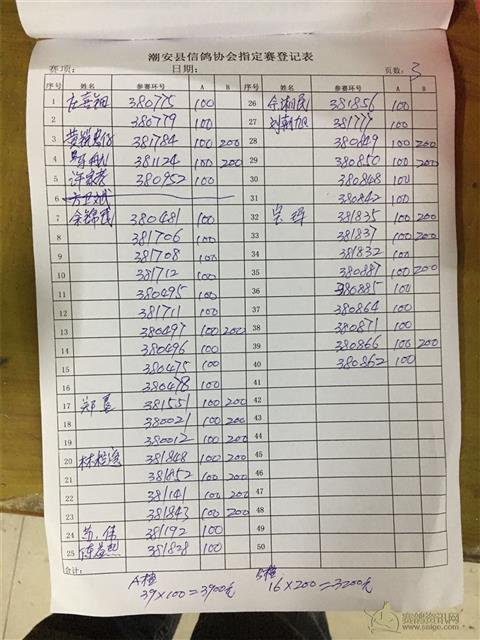 潮安县信鸽协会指定赛登记表
赛项: 日期: 页数: 3
序号 姓名 参赛环号 A B 序号 姓名 参赛环号 A B
1 380775 100 26 381856 100
2 380779 100 27 刘朝旭 381777 100
3 381784 100 200 28 380849 100 200
4 381124 100 200 29 380850 100 200
5 380952 100 30 380848 100
6 31 380842 100
7 余锦茂 380481 100 32 381835 100 200
8 381706 100 33 381837 100 200
9 381708 100 34 381832 100
10 381712 100 35 380887 100 200
11 380495 100 36 380885 100
12 381711 100 37 380864 100
13 380497 100 200 38 380871 100
14 380496 100 39 380866 100 200
15 380475 100 40 380862 100
16 380478 100 41
17 381551 100 200 42
18 380021 100 200 43
19 380012 100 200 44
20 381848 100 200 45
21 381852 100 200 46
22 381141 100 200 47
23 381843 100 200 48
24 苏伟 381192 100 49
25 381828 100 50
合计:
A檔 39×100=3900元 B檔 16×200=3200元
赛鸽资讯网
www.saige.com